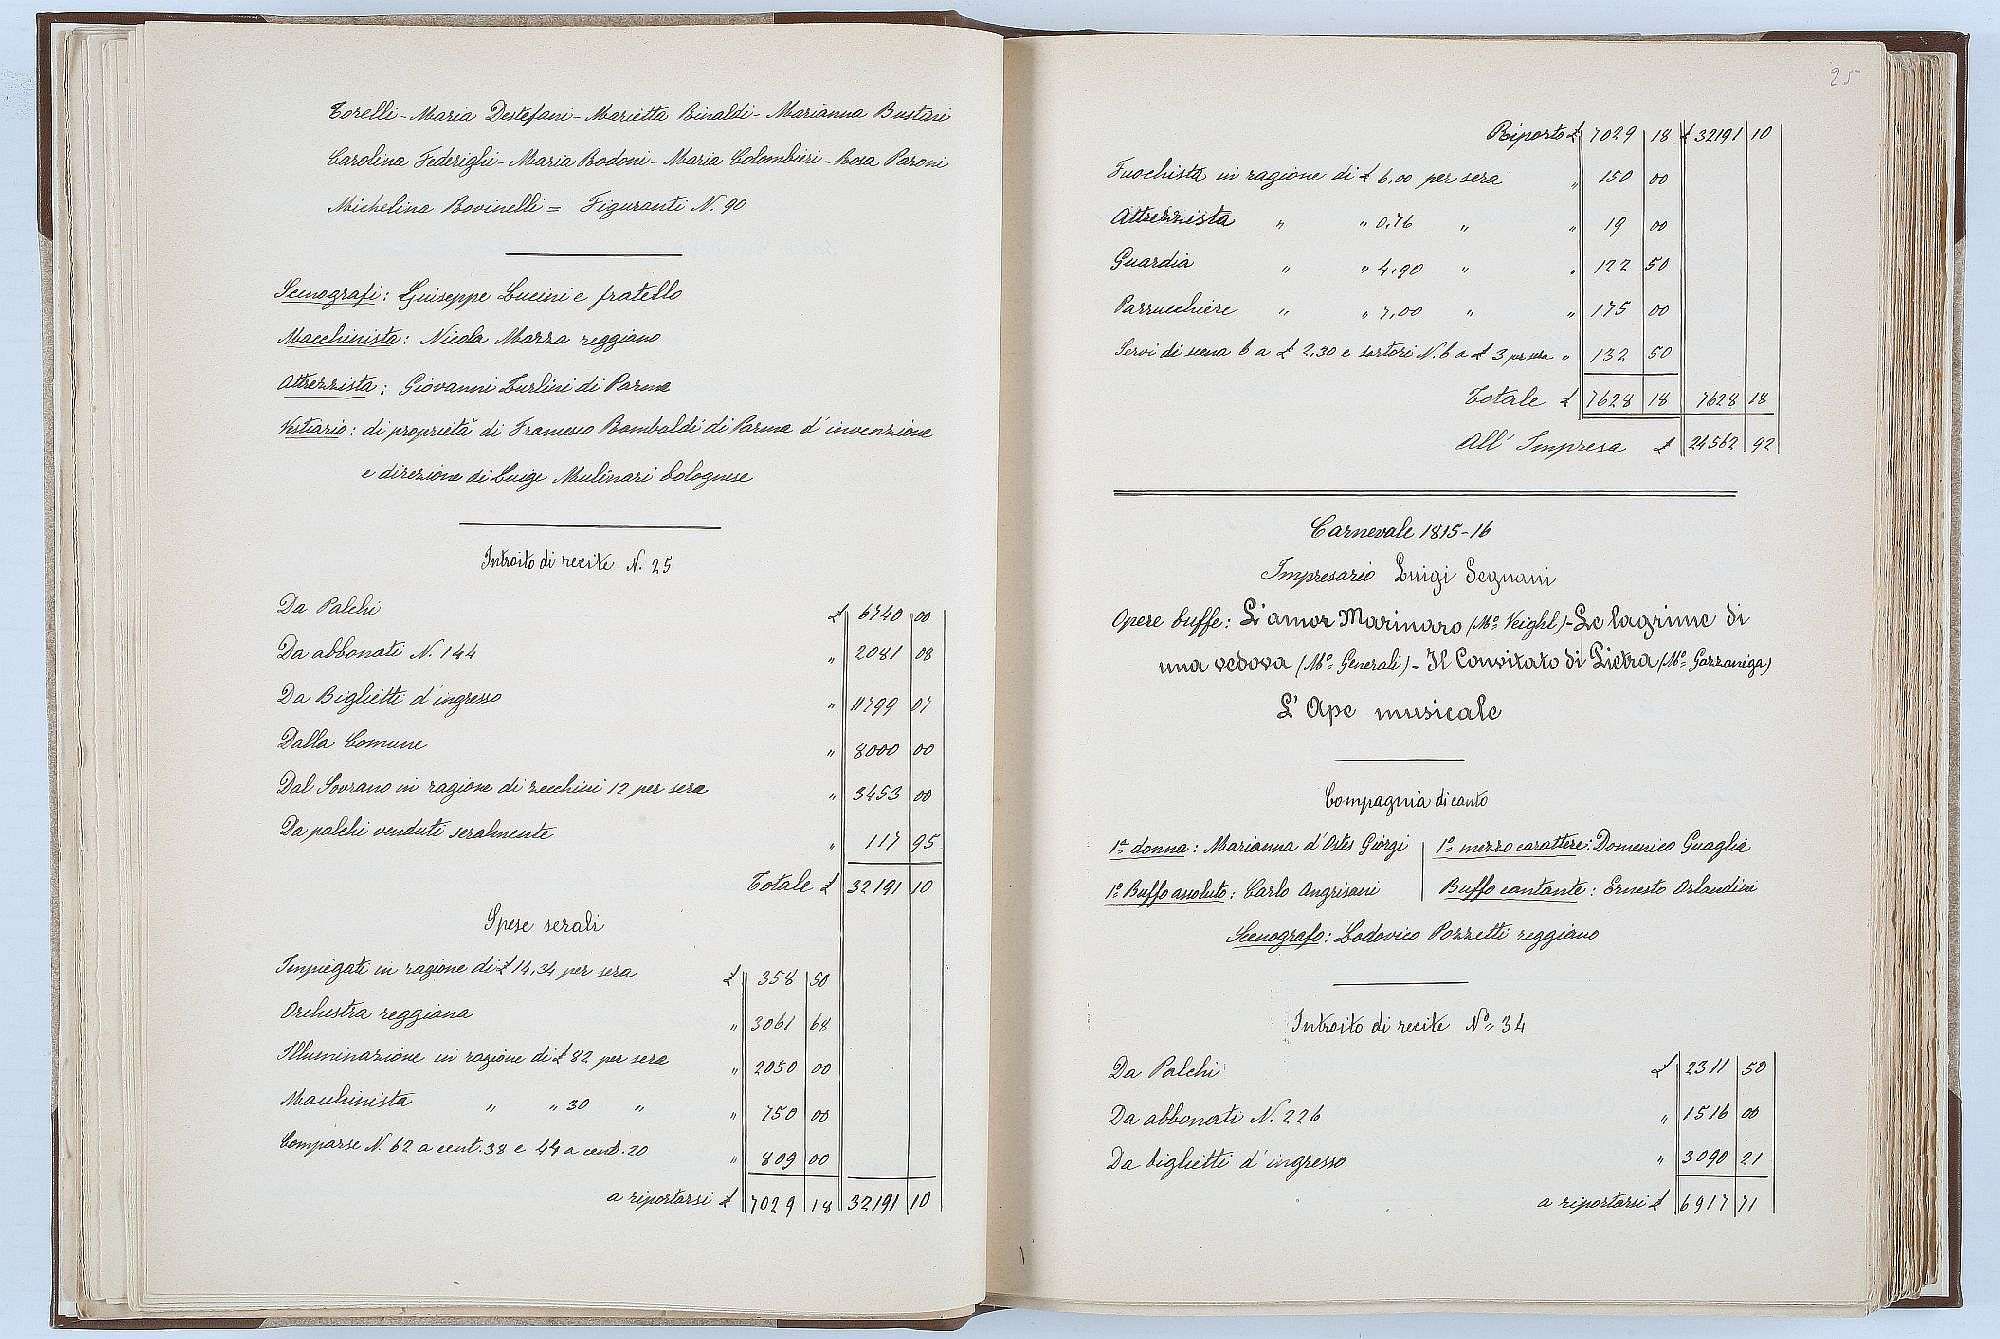 Torelli - Maria Destefani - Marietta Rinaldi - Marianna Bustini
Carolina Federighi - Maria Bodoni - Maria Colombieri - Rosa Paroni
Michelina Bovinelli = Figuranti N. 90
Scenografi: Giuseppe Lucini e fratello
Macchinista: Nicola Mazza reggiano
Attrezzista: Giovanni Zurlini di Parma
Vestiario: di proprietà di Francesco Bambaldi di Parma d'invenzione
e direzione di Luigi Mulinari bolognese
Introito di recite N. 25
Da Palchi £ 6740 00
Da abbonati N. 144 " 2081 08
Da Biglietti d'ingresso " 11799 07
Dalla Comune " 8000 00
Dal Sovrano in ragione di zecchini 12 per sera " 3453 00
Da palchi venduti seralmente " 117 95
Totale £ 32191 10
Spese serali
Impiegati in ragione di £ 14,34 per sera £ 358 50
Orchestra reggiana " 3061 68
Illuminazione in ragione di £ 82 per sera " 2050 00
Macchinista " " 30 " " 750 00
Comparse N. 62 a cent. 38 e 44 a cent. 20 " 809 00
a riportarsi £ 7029 18 32191 10
25
Riporto £ 7029 18 £ 32191 10
Fuochista in ragione di £ 6,00 per sera " 150 00
Attrezzista " " 0,76 " " 19 00
Guardia " " 4,90 " " 122 50
Parrucchiere " " 7,00 " " 175 00
Servi di scena 6 a £ 2,30 e sartori N. 6 a £ 3 per sera " 132 50
Totale £ 7628 18 7628 18
All' Impresa £ 24562 92
Carnevale 1815-16
Impresario Luigi Segnani
Opere buffe: L'amor Marinaro (Mo. Veighl) - Le lagrime di
una vedova (Mo. Generali) - Il Convitato di Pietra (Mo. Gazzaniga)
L'Ape musicale
Compagnia di canto
1a donna: Marianna d'Ostis Giorgi 1o mezzo carattere: Domenico Guaglia
1o Buffo assoluto: Carlo Angrisani Buffo cantante: Ernesto Orlandini
Scenografo: Lodovico Pozzetti reggiano
Introito di recite No. 34
Da Palchi £ 2311 50
Da abbonati N. 226 " 1516 00
Da biglietti d'ingresso " 3090 21
a riportarsi £ 6917 71